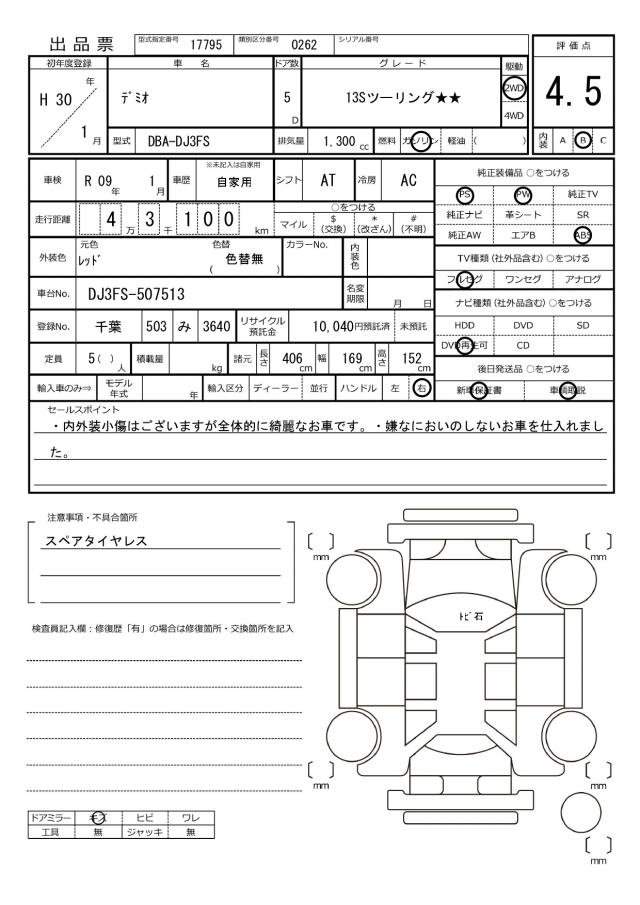 出品票 型式指定番号 17795 類別区分番号 0262 シリアル番号
評価点
4.5
初年度登録 車名 ドア数 グレード 駆動
H 30 年 1 月
デミオ
5 D
13Sツーリング★★
2WD
4WD
型式 DBA-DJ3FS 排気量 1,300 cc 燃料 ガソリン 軽油 ( )
内装 A B C
車検 R 09 年 1 月 車歴 ※未記入は自家用 自家用 シフト AT 冷房 AC
走行距離 4 万 3 千 1 0 0 km
○をつける
マイル $(交換) *(改ざん) #(不明)
外装色 元色 レッド 色替 色替無 ( ) カラーNo. 内装色
車台No. DJ3FS-507513 名変期限 月 日
登録No. 千葉 503 み 3640 リサイクル預託金 10,040円預託済 未預託
定員 5( ) 人 積載量 kg 諸元 長さ 406 cm 幅 169 cm 高さ 152 cm
輸入車のみ⇒ モデル年式 年 輸入区分 ディーラー 並行 ハンドル 左 右
純正装備品 ○をつける
PS PW 純正TV
純正ナビ 革シート SR
純正AW エアB ABS
TV種類(社外品含む)○をつける
フルセグ ワンセグ アナログ
ナビ種類(社外品含む)○をつける
HDD DVD SD
DVD再生可 CD
後日発送品 ○をつける
新車保証書 車輌取説
セールスポイント
・内外装小傷はございますが全体的に綺麗なお車です。・嫌なにおいのしないお車を仕入れまし
た。
注意事項・不具合箇所
スペアタイヤレス
検査員記入欄:修復歴「有」の場合は修復箇所・交換箇所を記入
〔 〕 mm
〔 〕 mm
トビ石
〔 〕 mm
〔 〕 mm
〔 〕 mm
ドアミラー キズ ヒビ ワレ
工具 無 ジャッキ 無